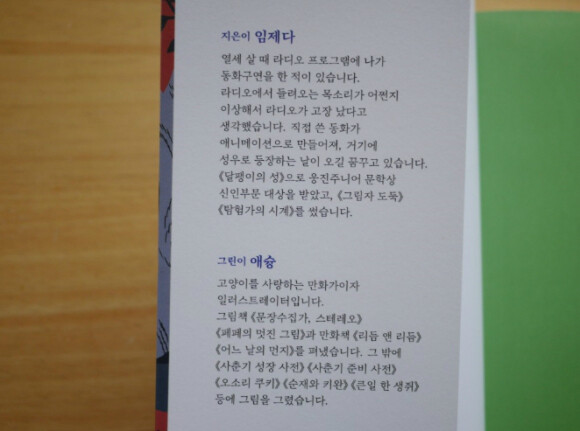 지은이 임제다
열세 살 때 라디오 프로그램에 나가
동화구연을 한 적이 있습니다.
라디오에서 들려오는 목소리가 어쩐지
이상해서 라디오가 고장 났다고
생각했습니다. 직접 쓴 동화가
애니메이션으로 만들어져, 거기에
성우로 등장하는 날이 오길 꿈꾸고 있습니다.
《달팽이의 성》으로 웅진주니어 문학상
신인부문 대상을 받았고, 《그림자 도둑》
《탐험가의 시계》를 썼습니다.
그린이 애슝
고양이를 사랑하는 만화가이자
일러스트레이터입니다.
그림책 《문장수집가, 스테레오》
《페페의 멋진 그림》과 만화책 《리듬 앤 리듬》
《어느 날의 먼지》를 펴냈습니다. 그 밖에
《사춘기 성장 사전》 《사춘기 준비 사전》
《오소리 쿠키》 《순재와 키완》 《큰일 한 생쥐》
등에 그림을 그렸습니다.